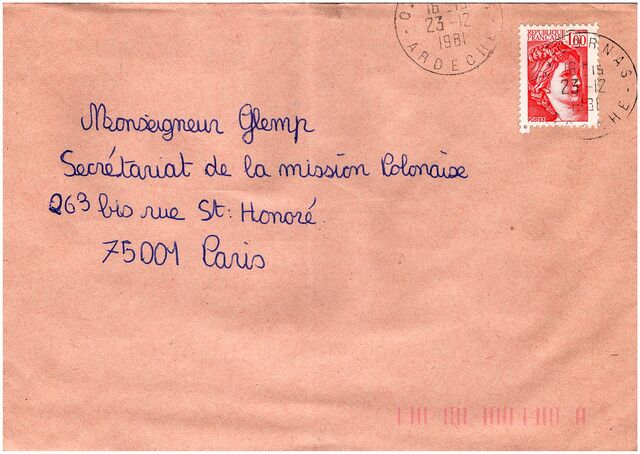 16-15
23-12
1981
ARDECHE
REPUBLIQUE
FRANÇAISE
1,60
POSTES
15
23-12
1981
Monseigneur Glemp
Secrétariat de la mission Polonaise
263 bis rue St. Honoré
75001 Paris